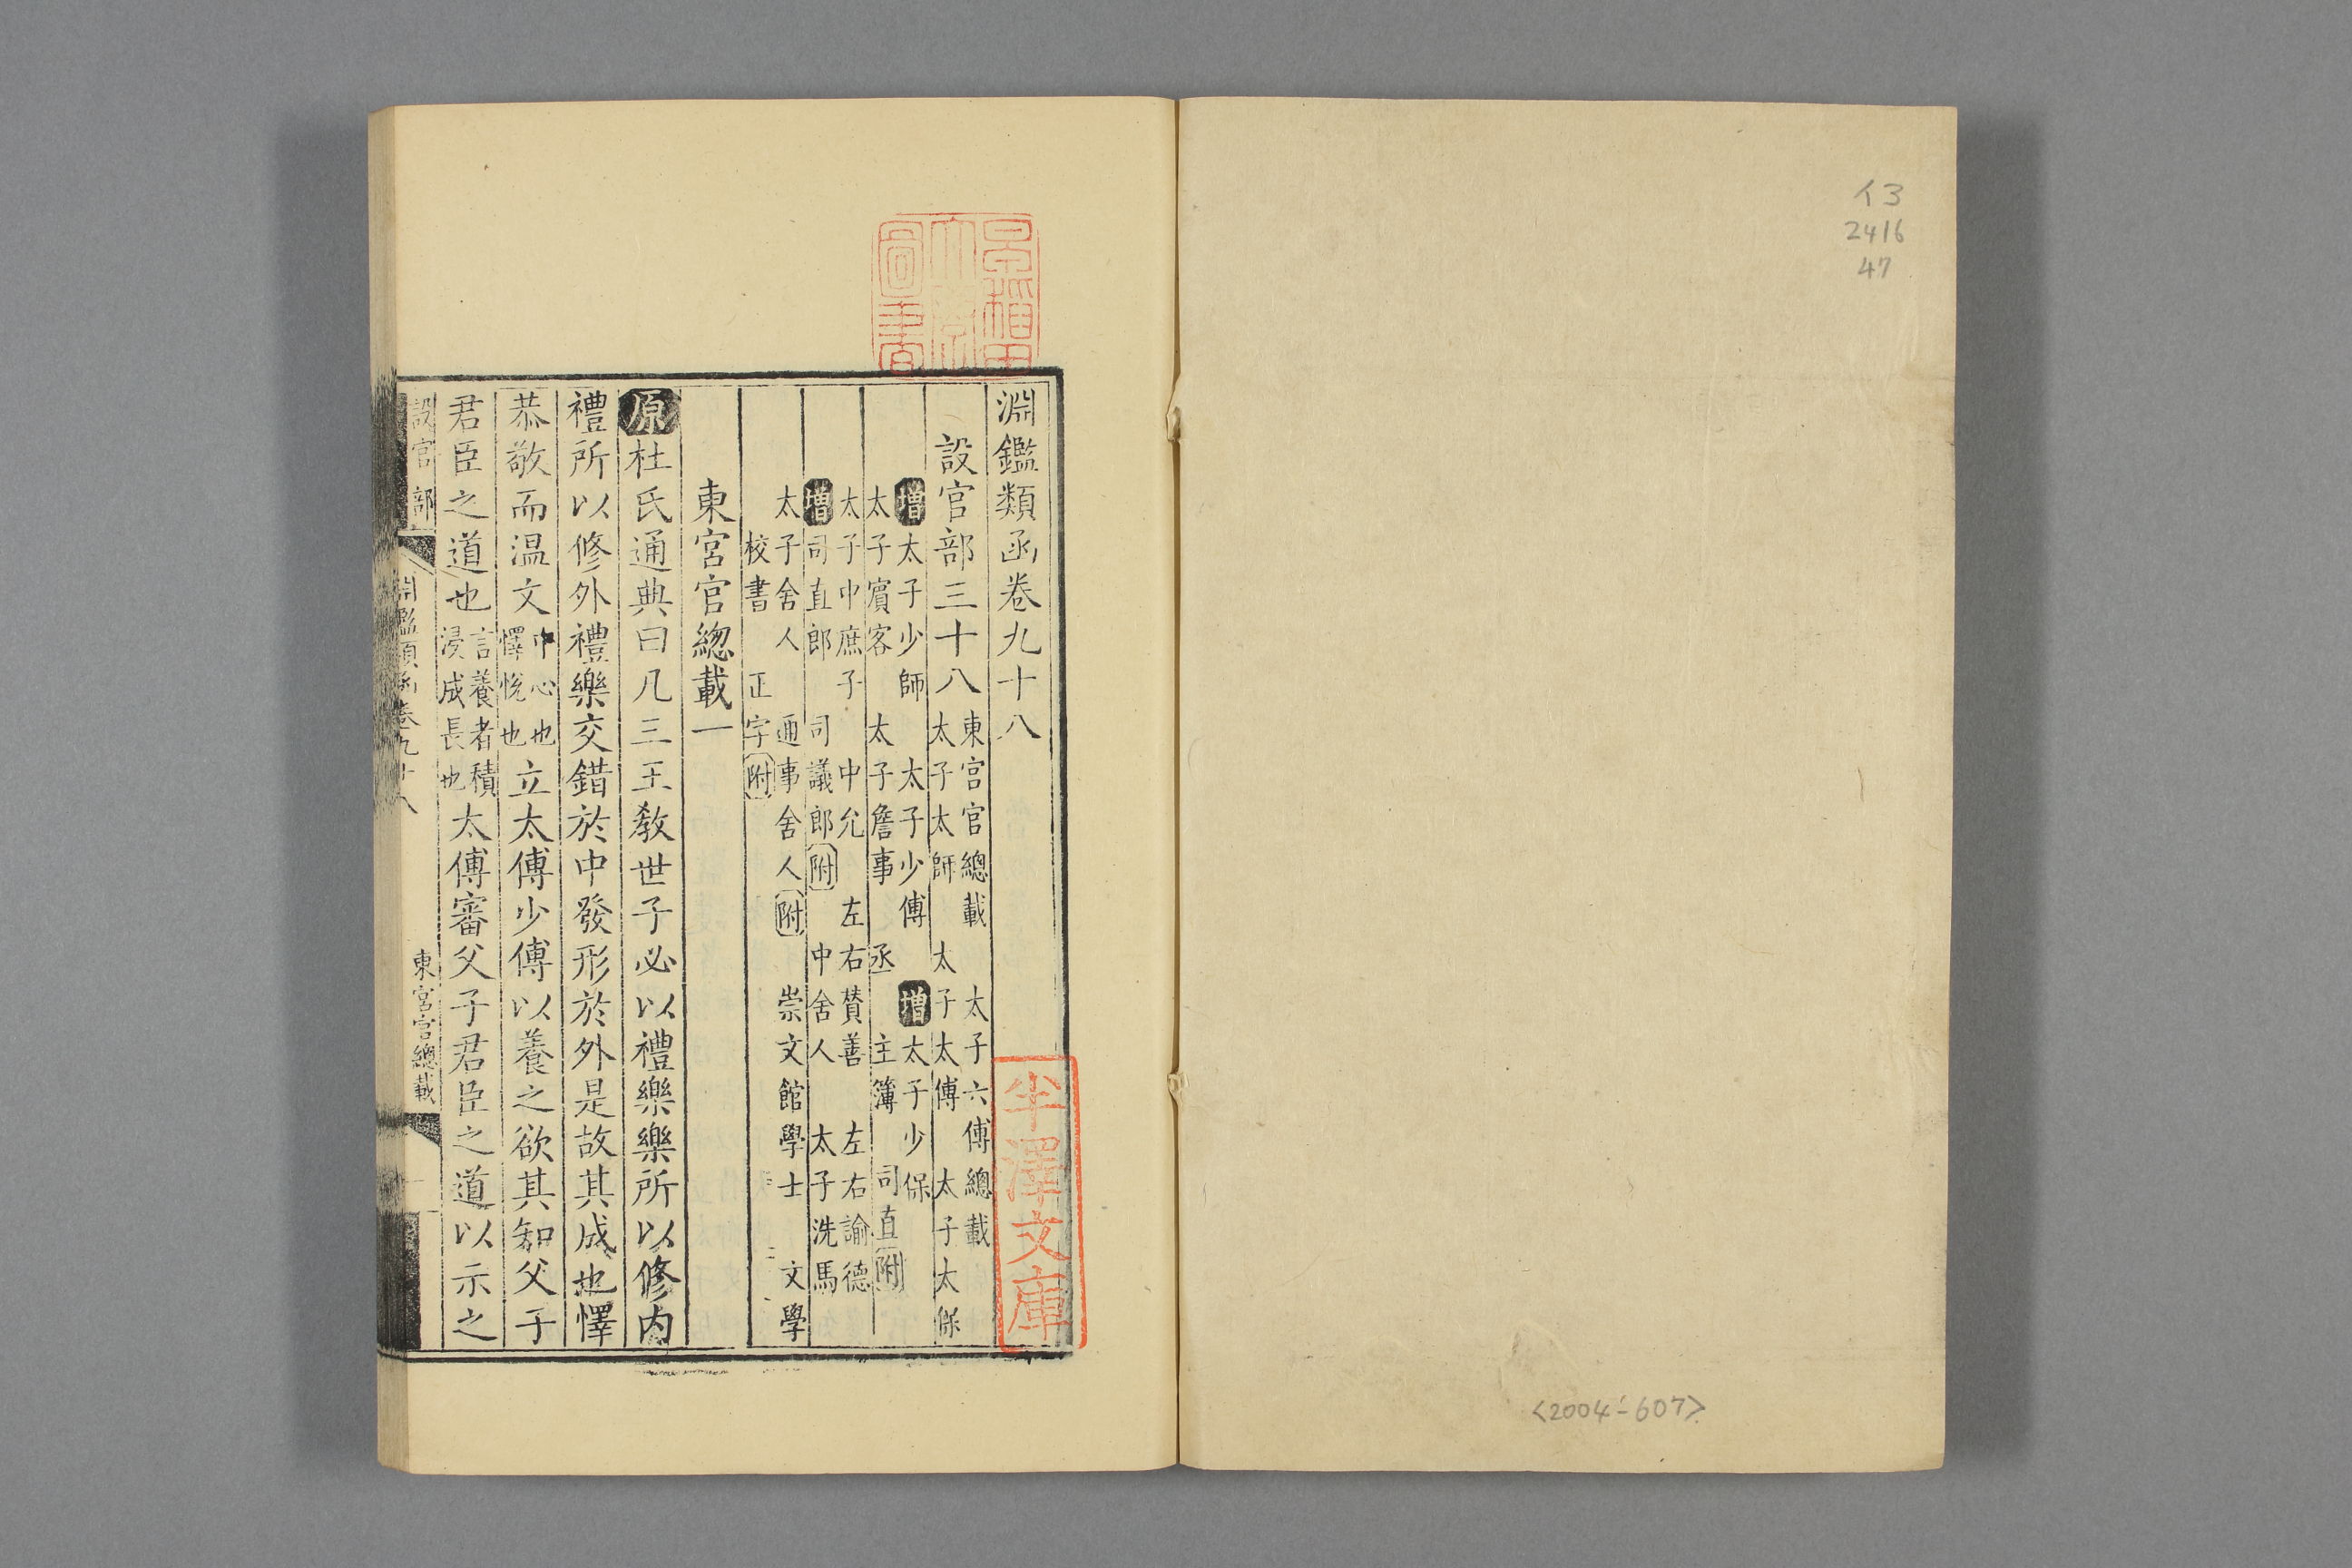 イ3
2416
47
<2004-607>
早稻田
大學
圖書
淵鑑類函卷九十八
半澤文庫
設官部三十八
東宮官總載 太子六傅總載
太子太師 太子太傅 太子太保
增太子少師 太子少傅 增太子少保
太子賓客 太子詹事 丞 主簿 司直附
太子中庶子 中允 左右贊善 左右諭德
增司直郎 司議郎附 中舍人 太子洗馬
太子舍人 通事舍人附 崇文館學士 文學
校書 正字附
東宮官總載一
原杜氏通典曰凡三王教世子必以禮樂樂所以修內
禮所以修外禮樂交錯於中發形於外是故其成也懌
恭敬而溫文中心也懌悅也立太傅少傅以養之欲其知父子
君臣之道也言養者積浸成長也太傅審父子君臣之道以示之
設官部 淵鑑類函卷九十八 東宮官總載 一